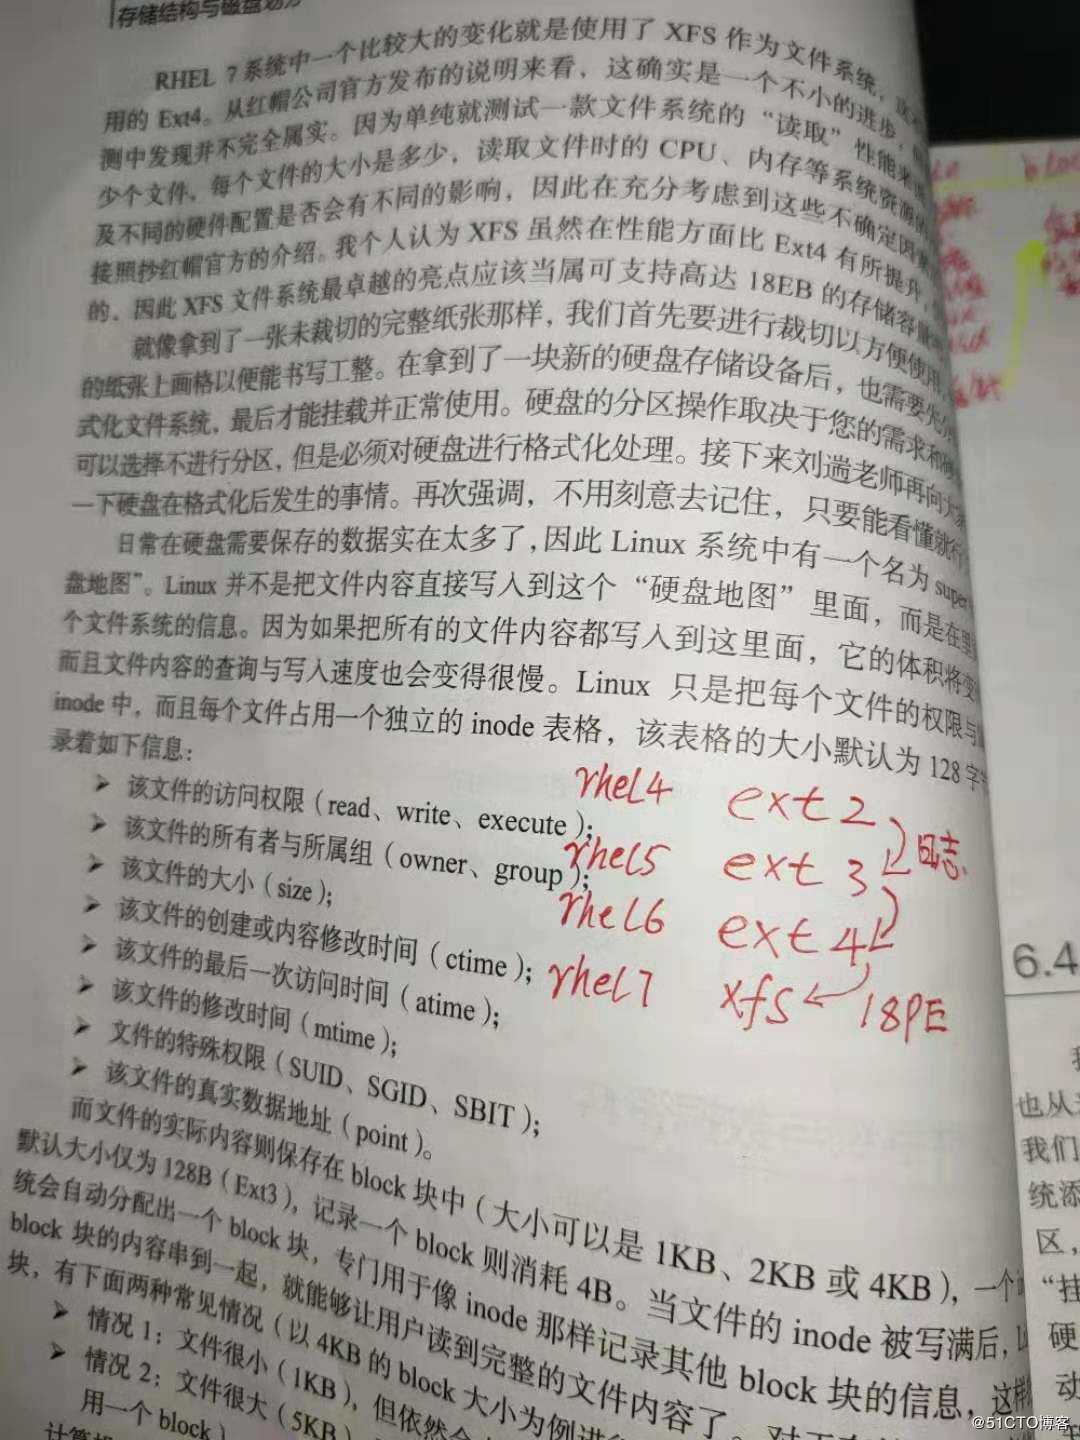 存储结构与磁盘划分
RHEL 7系统中一个比较大的变化就是使用了 XFS 作为文件系统，
用的 Ext4。从红帽公司官方发布的说明来看，这确实是一个不小的进步，
测中发现并不完全属实。因为单纯就测试一款文件系统的“读取”性能来说
少个文件，每个文件的大小是多少，读取文件时的 CPU、内存等系统资源的
及不同的硬件配置是否会有不同的影响，因此在充分考虑到这些不确定因素
接照抄红帽官方的介绍。我个人认为 XFS 虽然在性能方面比 Ext4 有所提升，
的，因此 XFS 文件系统最卓越的亮点应该当属可支持高达 18EB 的存储容量
就像拿到了一张未裁切的完整纸张那样，我们首先要进行裁切以方便使用，
的纸张上画格以便能书写工整。在拿到了一块新的硬盘存储设备后，也需要先
式化文件系统，最后才能挂载并正常使用。硬盘的分区操作取决于您的需求和
可以选择不进行分区，但是必须对硬盘进行格式化处理。接下来刘遄老师再向大家
一下硬盘在格式化后发生的事情。再次强调，不用刻意去记住，只要能看懂就行
日常在硬盘需要保存的数据实在太多了，因此 Linux 系统中有一个名为 super
盘地图”。Linux 并不是把文件内容直接写入到这个“硬盘地图”里面，而是在里
个文件系统的信息。因为如果把所有的文件内容都写入到这里面，它的体积将变
而且文件内容的查询与写入速度也会变得很慢。Linux 只是把每个文件的权限与
inode 中，而且每个文件占用一个独立的 inode 表格，该表格的大小默认为 128 字
录着如下信息：
➢ 该文件的访问权限（read、write、execute）；
➢ 该文件的所有者与所属组（owner、group）；
➢ 该文件的大小（size）；
➢ 该文件的创建或内容修改时间（ctime）；
➢ 该文件的最后一次访问时间（atime）；
➢ 该文件的修改时间（mtime）；
➢ 文件的特殊权限（SUID、SGID、SBIT）；
➢ 该文件的真实数据地址（point）。
rhel4 ext2
rhel5 ext3 日志
rhel6 ext4
rhel7 xfs 18PE
而文件的实际内容则保存在 block 块中（大小可以是 1KB、2KB 或 4KB），一个
默认大小仅为 128B（Ext3），记录一个 block 则消耗 4B。当文件的 inode 被写满后，
统会自动分配出一个 block 块，专门用于像 inode 那样记录其他 block 块的信息，这样
block 块的内容串到一起，就能够让用户读到完整的文件内容了。对于
块，有下面两种常见情况（以 4KB 的 block 大小为例进
➢ 情况 1：文件很小（1KB），但依然会
➢ 情况 2：文件很大（5KB
用一个 block）
计算机
6.4
也从
我们
统添
区，
“挂
硬
动
@51CTO博客